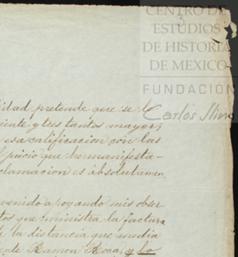 CENTRO DE
ESTUDIOS
DE HISTORIA
DE MEXICO
FUNDACIÓN
Carlos Slim
lidad pretende que se lo
ciente, y tres tantos mayor,
esa calificacion con las
picio que he manifesta-
clamacion es absolutamen
venido apoyando mis obser
tos que ministra la factura
la distancia que media
Ramon Rosa, y lo